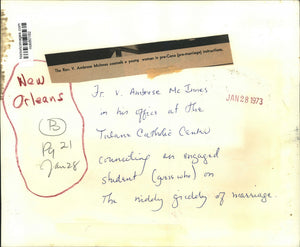 The Rev. V. Ambrose McInnes counsels a young woman in pre-Cana (pre-marriage) instructions.
New
Orleans
B
Pg 21
Jan 28
Fr. V. Ambrose McInnes
in his office at the
Tulane Catholic Center
JAN 28 1973
counseling an engaged
student (guess who) on
The niddy griddy of marriage.